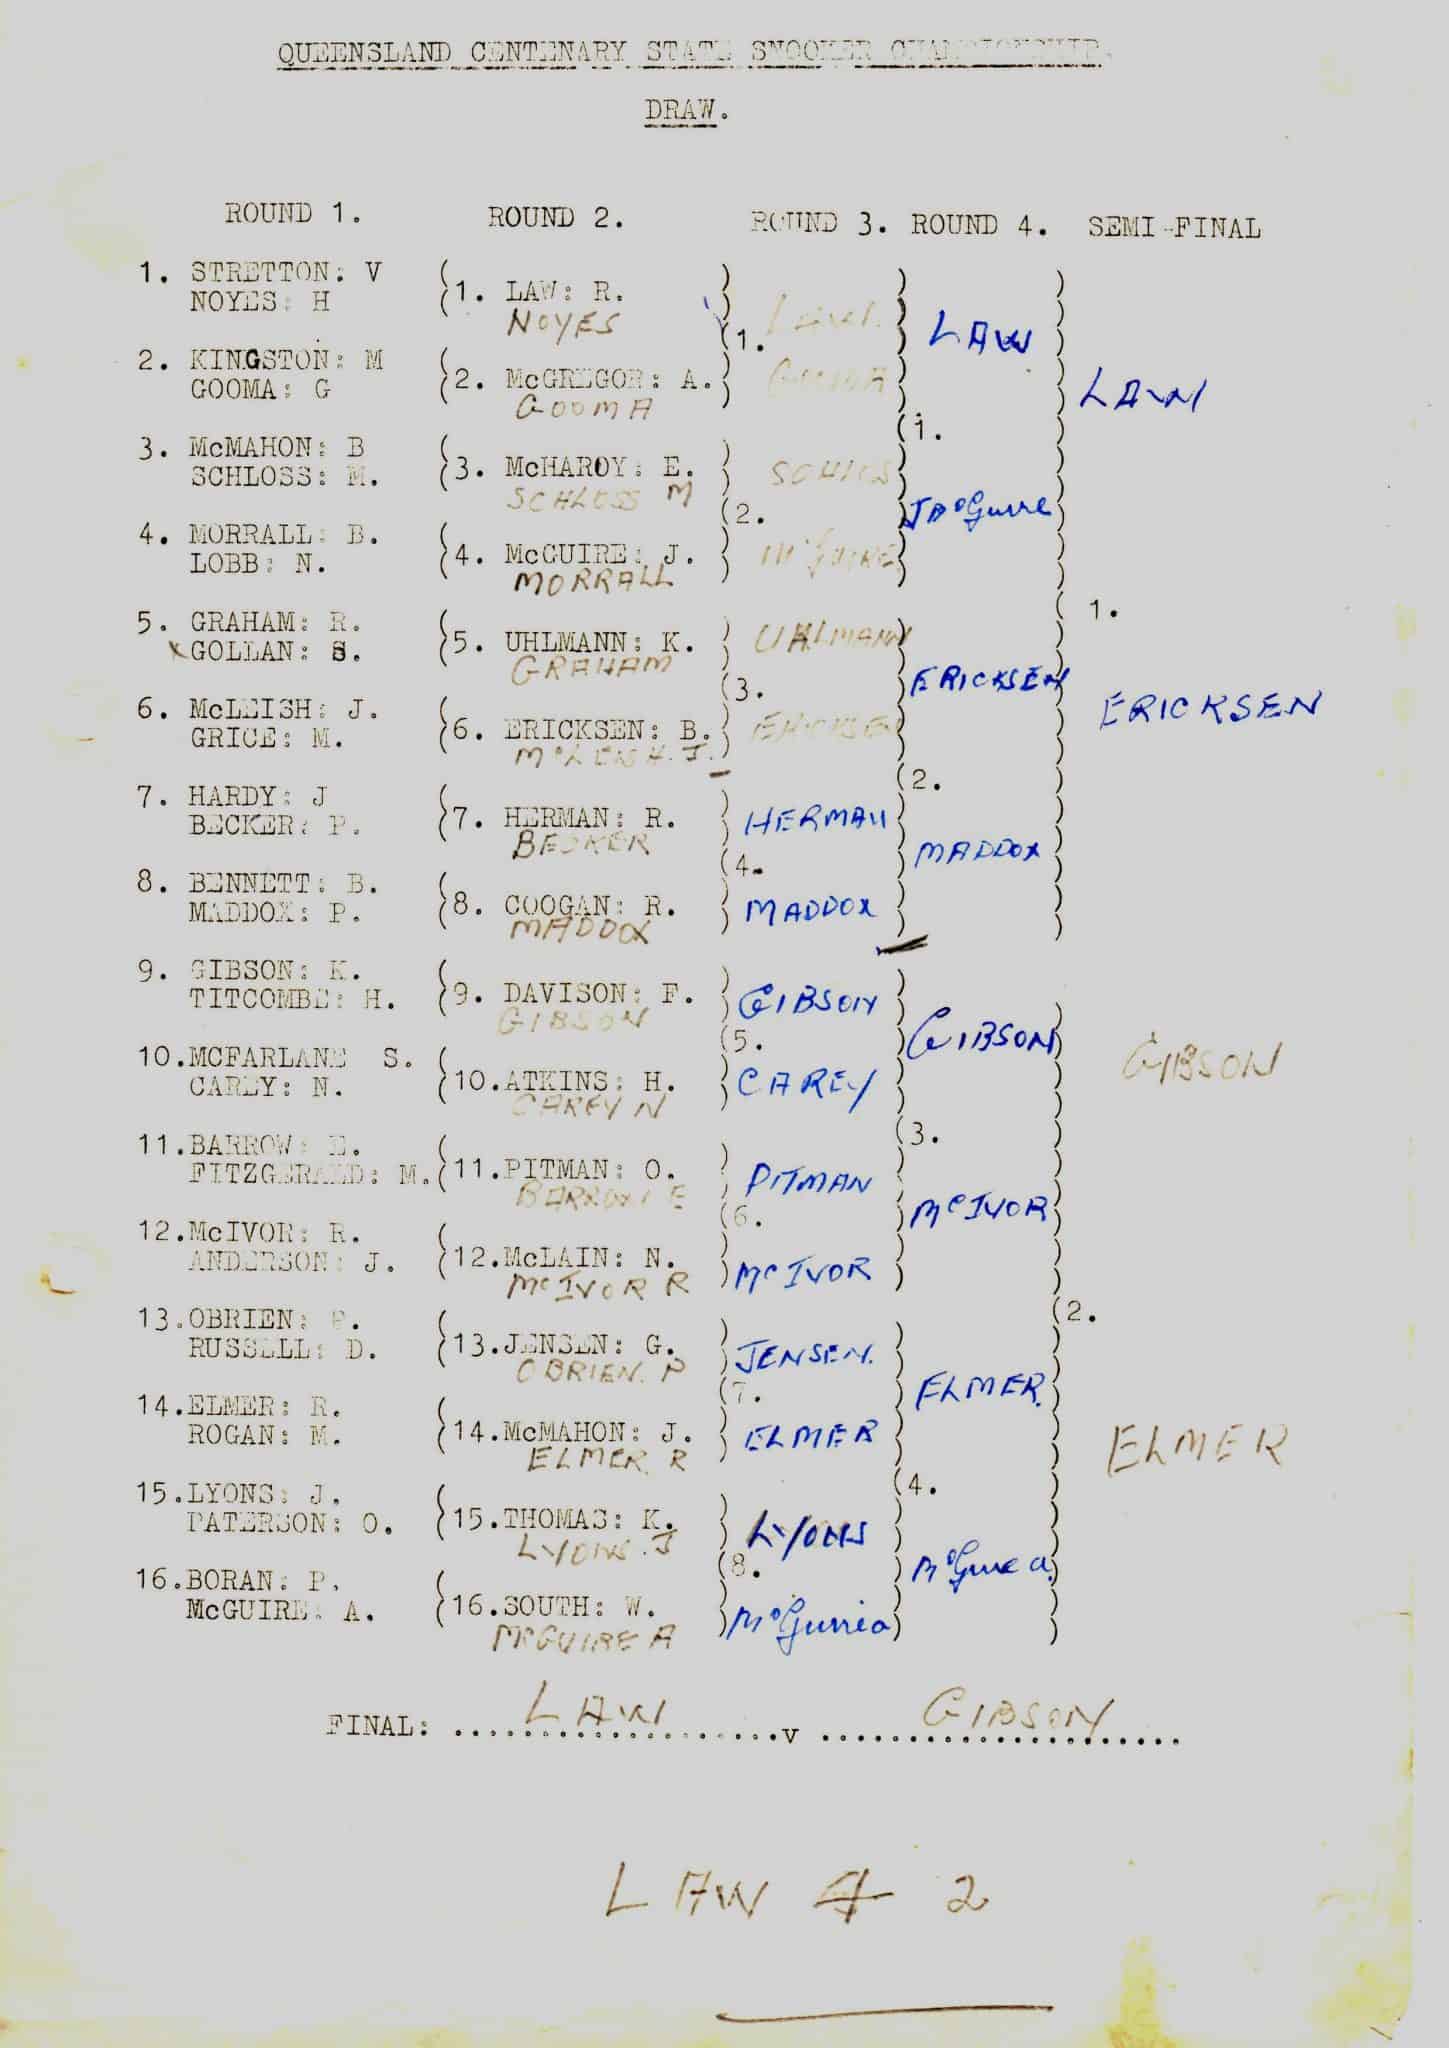 QUEENSLAND CENTENARY STATE SNOOKER CHAMPIONSHIP.
DRAW.
ROUND 1. ROUND 2. ROUND 3. ROUND 4. SEMI-FINAL
1. STRETTON: V
NOYES: H
2. KINGSTON: M
GOOMA: G
3. McMAHON: B
SCHLOSS: M.
4. MORRALL: B.
LOBB: N.
5. GRAHAM: R.
x GOLLAN: S.
6. McLEISH: J.
GRICE: M.
7. HARDY: J
BECKER: P.
8. BENNETT: B.
MADDOX: P.
9. GIBSON: K.
TITCOMBE: H.
10. MCFARLANE S.
CAREY: N.
11. BARROW: E.
FITZGERALD: M.
12. McIVOR: R.
ANDERSON: J.
13. OBRIEN: P.
RUSSELL: D.
14. ELMER: R.
ROGAN: M.
15. LYONS: J.
PATERSON: O.
16. BORAN: P.
McGUIRE: A.
1. LAW: R.
NOYES
2. McGREGOR: A.
GOOMA
3. McHAROY: E.
SCHLOSS M
4. McGUIRE: J.
MORRALL
5. UHLMANN: K.
GRAHAM
6. ERICKSEN: B.
McLEISH. J.
7. HERMAN: R.
BECKER
8. COOGAN: R.
MADDOX
9. DAVISON: F.
GIBSON
10. ATKINS: H.
CAREY N
11. PITMAN: O.
BARROW E
12. McLAIN: N.
McIVOR R
13. JENSEN: G.
OBRIEN. P
14. McMAHON: J.
ELMER. R
15. THOMAS: K.
LYONS. J
16. SOUTH: W.
McGUIRE A
LAW.
1.
GOOMA
SCHLOS
2.
McGUIRE
UHLMANN
3.
ERICKSEN
HERMAN
4.
MADDOX
GIBSON
5.
CAREY
PITMAN
6.
McIVOR
JENSEN.
7.
ELMER
LYONS
8.
McGuire a
LAW
1.
J McGuire
ERICKSEN
2.
MADDOX
GIBSON
3.
McIVOR
ELMER.
4.
McGuire a.
LAW
1.
ERICKSEN
GIBSON
2.
ELMER
FINAL: LAW v GIBSON
LAW 4 2